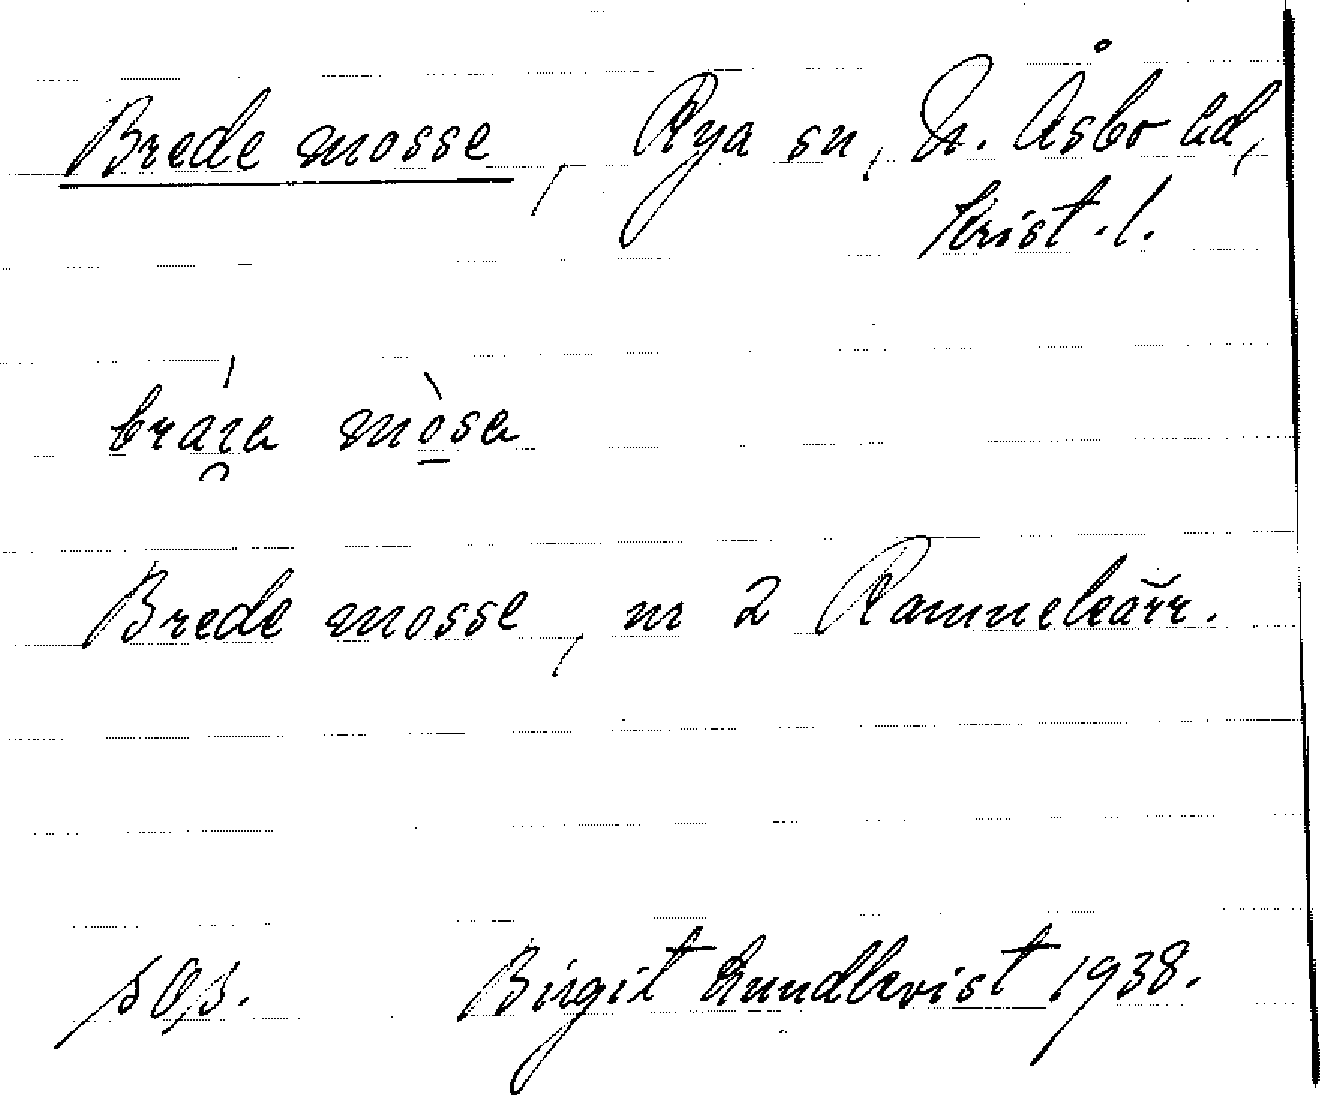 Brede mosse, Rya sn, N. Åsbo hd,
Krist. l.
Brede mosse, nr 2 Ramnekärr.
Birgit Lundkvist 1938.